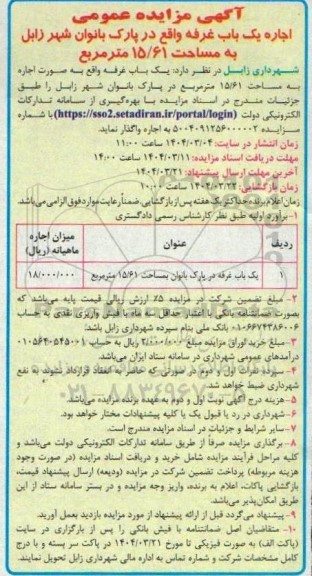 آگهی مزایده عمومی
اجاره یک باب غرفه واقع در پارک بانوان شهر زابل
به مساحت ۱۵/۶۱ مترمربع
شهرداری زابل در نظر دارد: یک باب غرفه واقع به صورت اجاره
به مساحت ۱۵/۶۱ مترمربع در پارک بانوان شهر زابل را طبق
جزئیات مندرج در اسناد مزایده با بهره‌گیری از سامانه تدارکات
الکترونیکی دولت (https://sso2.setadiran.ir/portal/login) با شماره
مزایده ۵۰۰۴۰۹۱۲۵۶۰۰۰۰۰۲ به اجاره واگذار نماید.
زمان انتشار در سایت: ۱۴۰۴/۰۳/۰۴ ساعت ۱۱:۰۰
مهلت دریافت اسناد مزایده: ۱۴۰۴/۰۳/۱۱ ساعت ۱۴:۰۰
آخرین مهلت ارسال پیشنهاد: ۱۴۰۴/۰۳/۲۱
زمان بازگشایی: ۱۴۰۴/۰۳/۲۲ ساعت ۱۰:۰۰
زمان اعلام برنده حداکثر یک هفته پس از بازگشایی، ضمناً رعایت موارد فوق الزامی می‌باشد.
۱- برآورد اولیه طبق نظر کارشناس رسمی دادگستری
ردیف عنوان میزان اجاره ماهیانه (ریال)
۱ یک باب غرفه در پارک بانوان بمساحت ۱۵/۶۱ مترمربع ۱۸/۰۰۰/۰۰۰
۲- مبلغ تضمین شرکت در مزایده ۵٪ ارزش ریالی قیمت پایه می‌باشد که
بصورت ضمانتنامه بانکی با اعتبار حداقل سه ماه یا فیش واریزی نقدی به حساب
۰۱۰۶۶۷۴۳۸۶۰۰۶ بانک ملی بنام سپرده شهرداری زابل باشد؛
۳- مبلغ خرید اوراق مزایده مبلغ ۲/۰۰۰/۰۰۰ ریال به حساب
درآمدهای عمومی شهرداری در سامانه ستاد ایران می‌باشد.
۴- سپرده نفرات اول و دوم در صورتی که حاضر به انعقاد قرارداد نشوند به نفع
شهرداری ضبط خواهد شد.
۵- هزینه درج آگهی نوبت اول و دوم به عهده برنده مزایده می‌باشد.
۶- شهرداری در رد یا قبول یک یا کلیه پیشنهادات مختار خواهد بود.
۷- سایر شرایط و جزئیات در اسناد مزایده مندرج است.
۸- برگزاری مزایده صرفاً از طریق سامانه تدارکات الکترونیکی دولت می‌باشد و
کلیه مراحل فرآیند مزایده شامل خرید و دریافت اسناد مزایده (در صورت وجود
هزینه مربوطه) پرداخت تضمین شرکت در مزایده (ودیعه) ارسال پیشنهاد قیمت،
بازگشایی پاکات، اعلام به برنده، واریز وجه مزایده و در بستر سامانه ستاد از این
طریق امکان‌پذیر می‌باشد.
۹- پیشنهاد می‌گردد قبل از ارائه پیشنهاد از مورد مزایده بازدید بعمل آورید.
۱۰- متقاضیان اصل ضمانتنامه یا فیش بانکی را پس از بارگزاری در سایت
(پاکت الف) به صورت فیزیکی تا مورخ ۱۴۰۴/۰۳/۲۱ در پاکت سر بسته و با درج
کامل مشخصات شرکت و شماره تماس به اداره مالی شهرداری زابل تحویل نمایند.